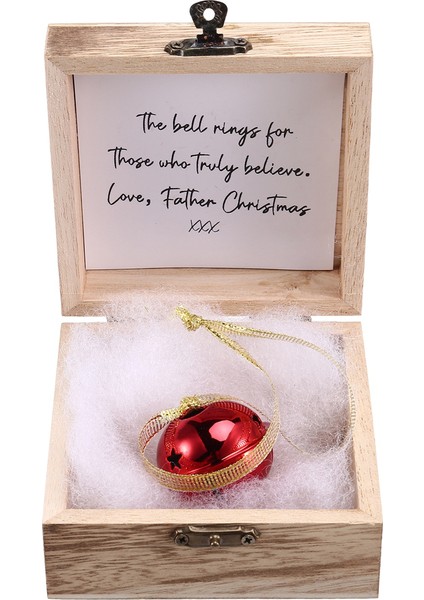 The bell rings for
Those who Truly believe.
Love, Father Christmas
xxx